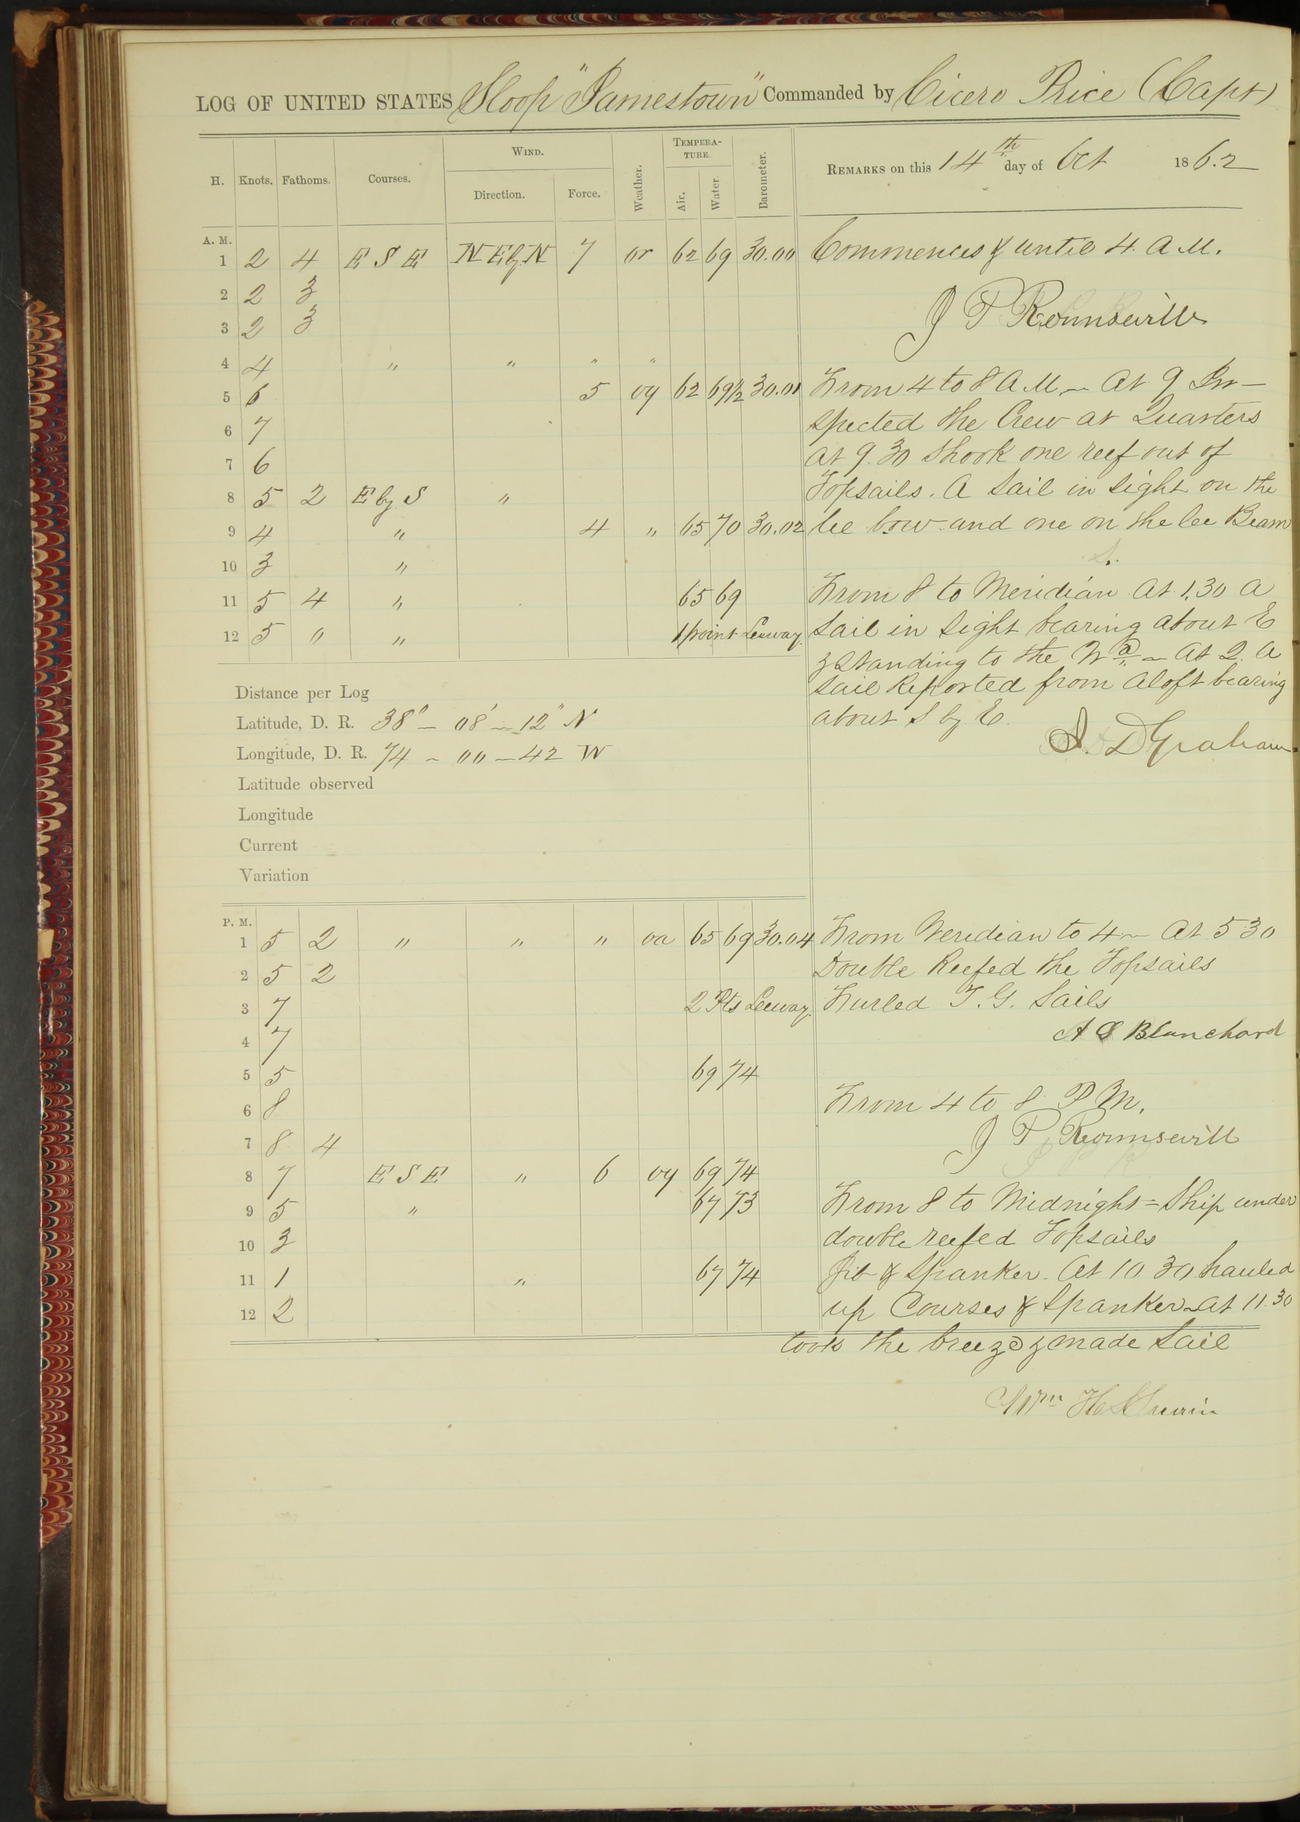 LOG OF UNITED STATES Sloop "Jamestown" Commanded by Cicero Price (Capt)
H. Knots. Fathoms. Courses. WIND. Direction. Force. Weather. TEMPERATURE. Air. Water. Barometer. REMARKS on this 14th day of Oct 186.2
A. M.
1 2 4 E S E N E by N 7 or 62 69 30.00 Commences & until 4 A M.
2 2 3
3 2 3 J P Rounsevill
4 4 " " " "
5 6 5 og 62 69 1/2 30.01 From 4 to 8 A M ~ At 9 In-
6 7 spected the Crew at Quarters
7 6 at 9.30 Shook one reef out of
8 5 2 E by S " Topsails. A Sail in Sight on the
9 4 " 4 " 65 70 30.02 lee bow and one on the lee Beam
10 3 "
11 5 4 " 65 69 From 8 to Meridian At 1,30 A
12 5 " " 1 point Leeway. Sail in Sight bearing about E
& Standing to the Wd ~ At 2. A
Distance per Log Sail Reported from Aloft bearing
Latitude, D. R. 38° - 08' - 12" N about S by E.
Longitude, D. R. 74 - 00 - 42 W S. D Graham
Latitude observed
Longitude
Current
Variation
P. M.
1 5 2 " " " oc 65 69 30.04 From Meridian to 4 ~ At 5 30
2 5 2 Double Reefed the Topsails
3 7 2 Pts Leeway. Furled T. G. Sails
4 7 A S Blanchard
5 5 69 74
6 8 From 4 to 8 P M.
7 8 4 J P Rounsevill
8 7 E S E " 6 og 69 74
9 5 " 67 73 From 8 to Midnight = Ship under
10 3 double reefed Topsails
11 1 " 67 74 Jib & Spanker. At 10 30 hauled
12 2 up Courses & Spanker ~ at 11.30
took the breeze & made Sail
Wm H